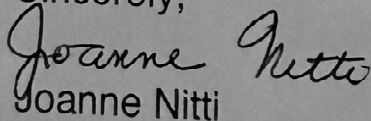 Sincerely,
Joanne Nitti
Joanne Nitti